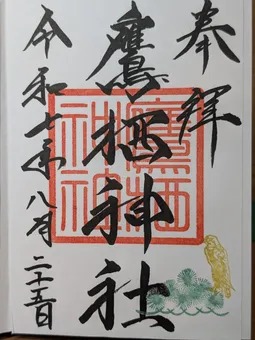 奉拝
鷹栖神社
鷹栖神社
令和七年八月二十五日